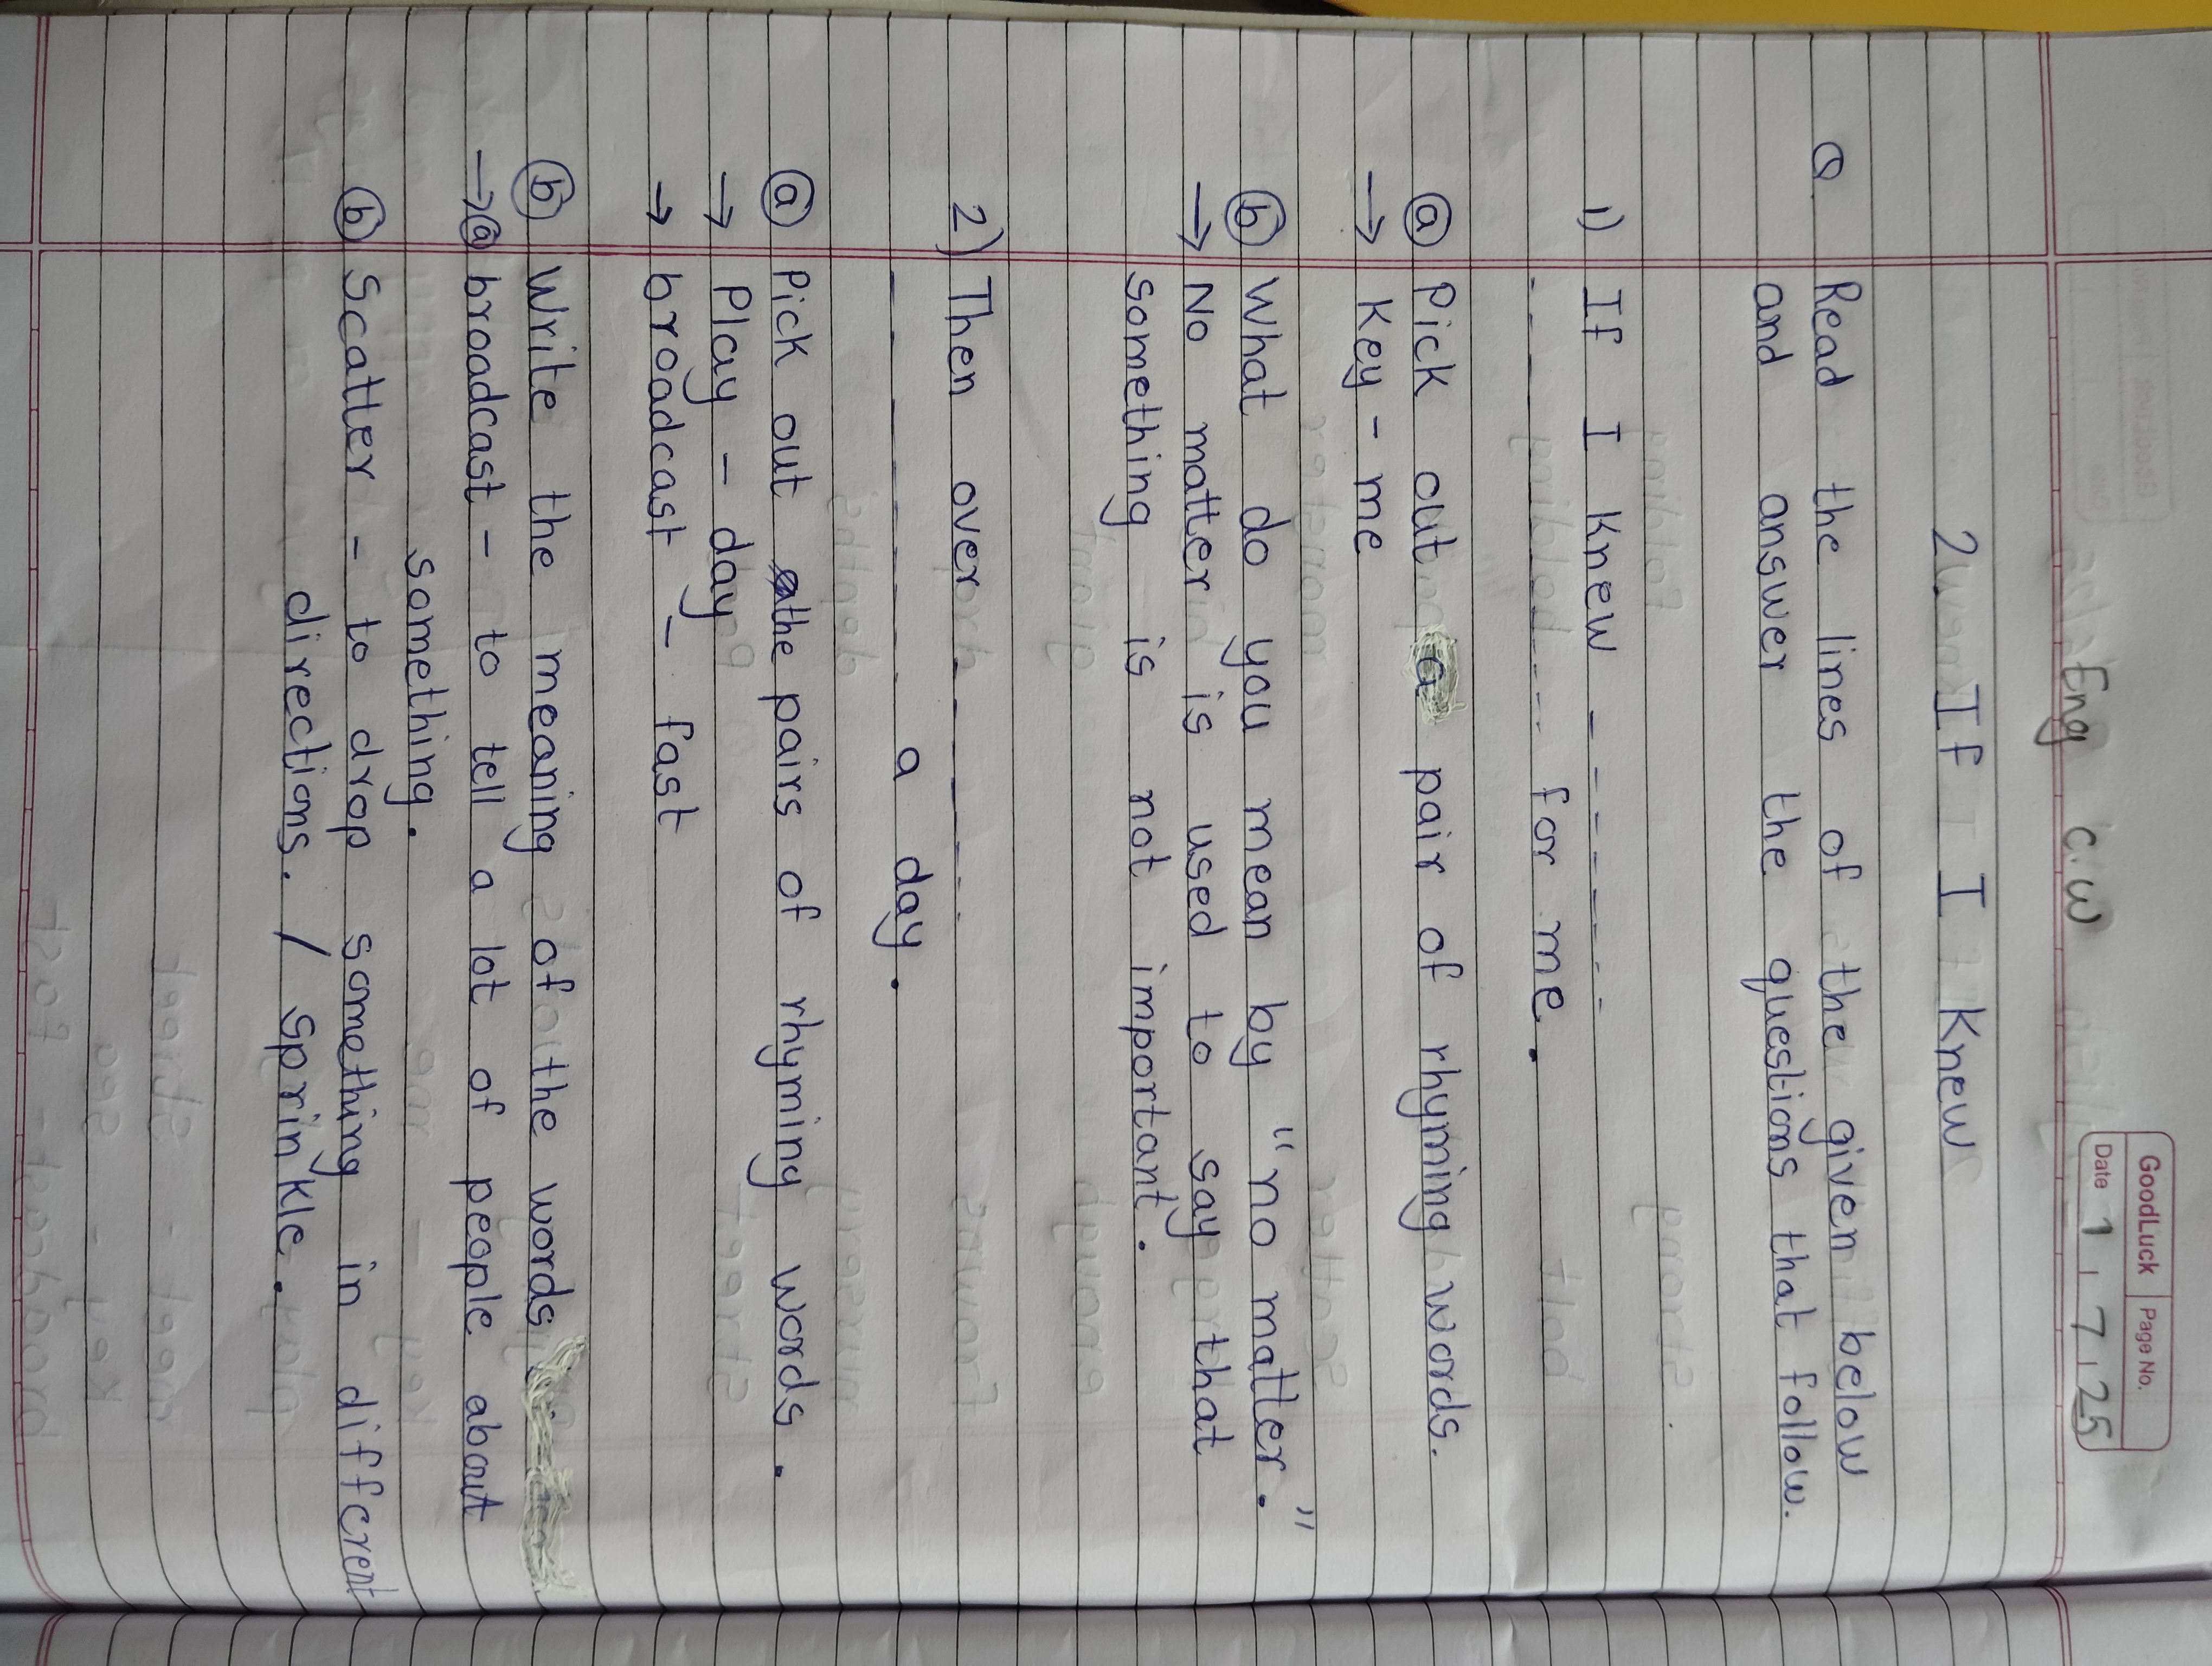 GoodLuck Page No.
Date 1 7 25
Eng c.w
2. If I Knew
Q. Read the lines of the given below
and answer the questions that follow.
1) If I Knew - - - - - - -
- - - - - - - for me.
(a) Pick out a pair of rhyming words.
→ Key - me
(b) What do you mean by "no matter."
→ No matter is used to say that
something is not important.
2) Then over - - - - - -
- - - - - - - a day.
(a) Pick out the pairs of rhyming words.
→ Play - day
→ broadcast - fast
(b) Write the meaning of the words
→ (a) broadcast - to tell a lot of people about
something.
(b) Scatter - to drop something in different
directions. / sprinkle.